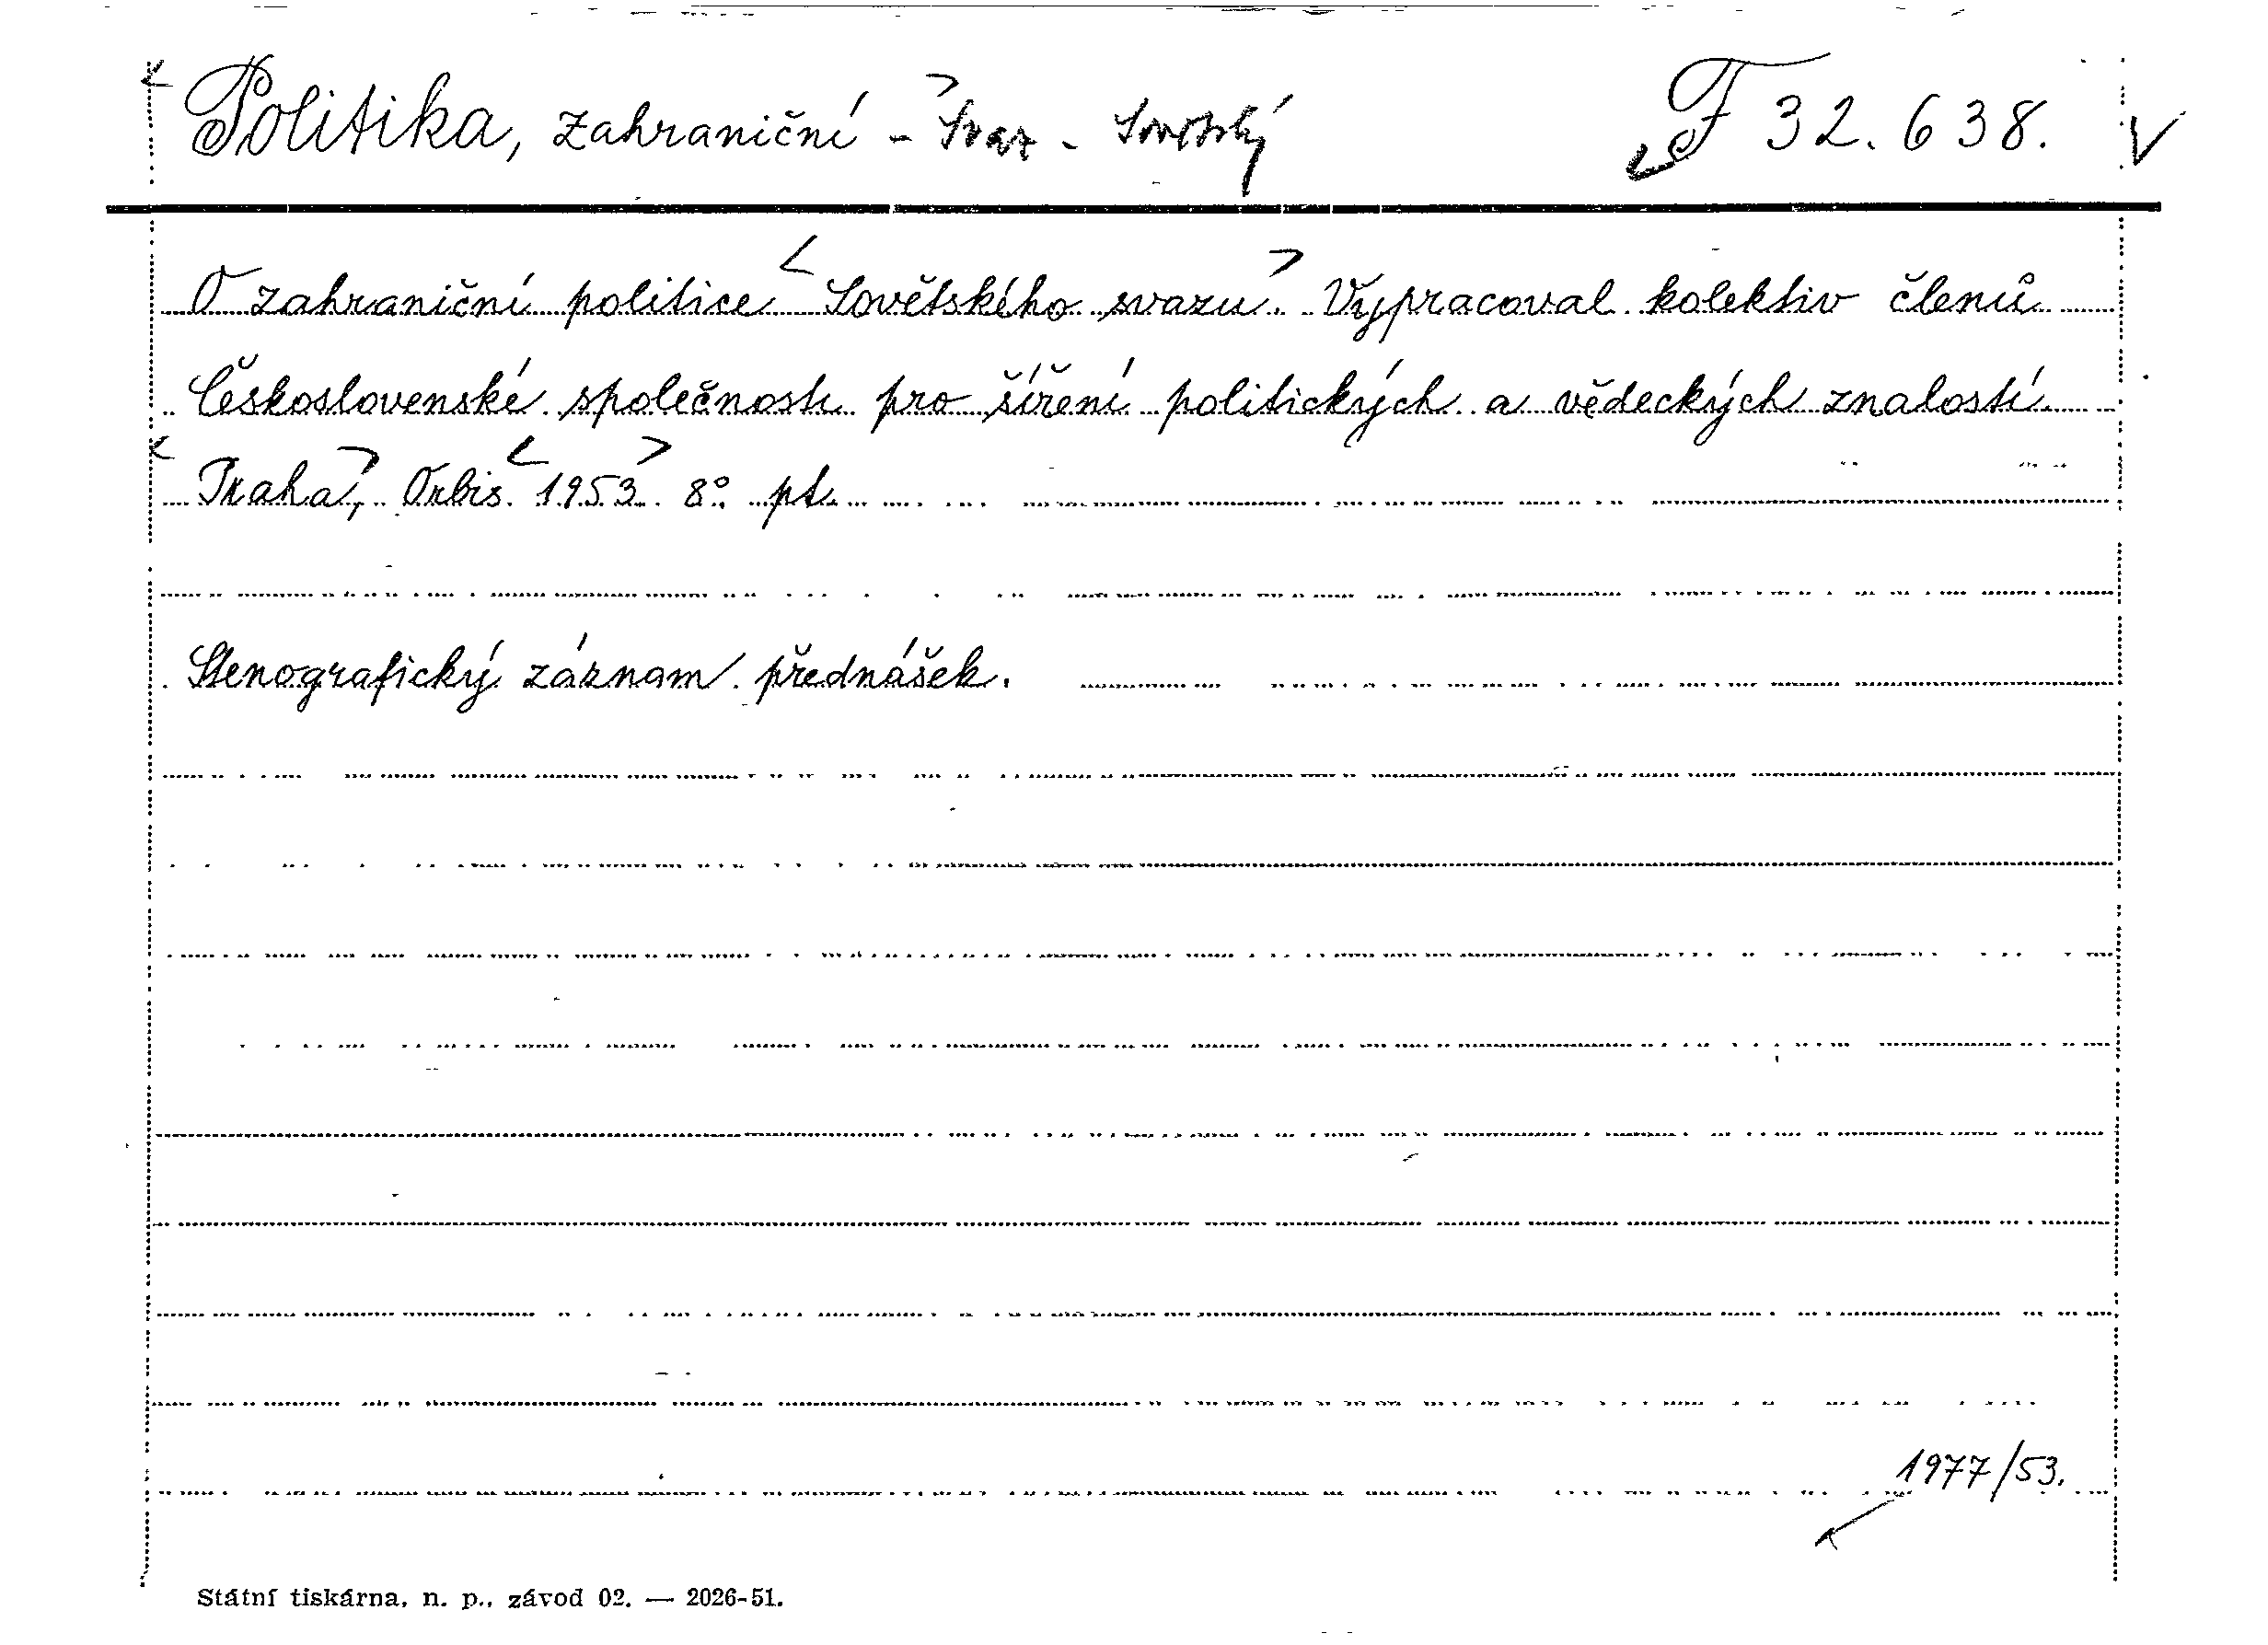 Politika, zahraniční - Svaz - Sovětský F 32.638.
O zahraniční politice Sovětského svazu. Vypracoval kolektiv členů
Československé společnosti pro šíření politických a vědeckých znalostí.
Praha, Orbis 1953. 8° pt.
Stenografický záznam přednášek.
1977/53.
Státní tiskárna, n. p., závod 02. — 2026-51.